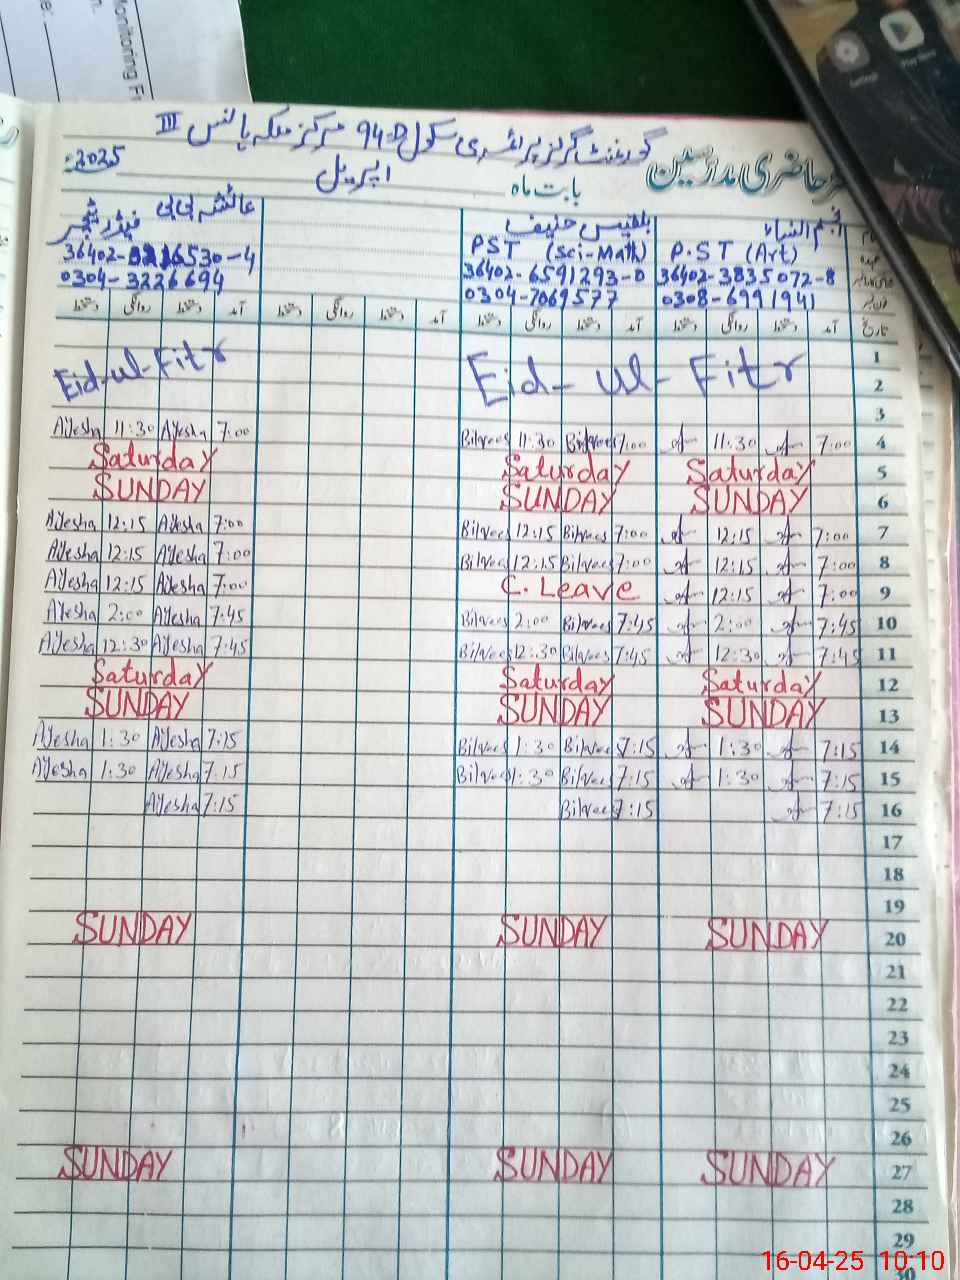 Monitoring F
گورنمنٹ گرلز پرائمری سکول 94-D مرکز ملکہ ہانس III
حاضری مدرسین بابت ماہ اپریل 2025ء
نجم النساء بلقیس حنیف عائشہ بی بی
P.ST (Art) PST (Sci-Math) فیڈر ٹیچر
36402-3835072-8 36402-6591293-0
0308-6991941 0304-7069577 0304-3226694
تاریخ آمد دستخط روانگی دستخط آمد دستخط روانگی دستخط آمد دستخط روانگی دستخط آمد دستخط روانگی دستخط
1
2 Eid-ul-Fitr Eid-ul-Fitr
3
4 7:00 11:30 7:00 Bilqees 11:30 Bilqees 7:00 Ayesha 11:30 Ayesha
5 Saturday Saturday Saturday
6 SUNDAY SUNDAY SUNDAY
7 7:00 12:15 7:00 Bilqees 12:15 Bilqees 7:00 Ayesha 12:15 Ayesha
8 7:00 12:15 7:00 Bilqees 12:15 Bilqees 7:00 Ayesha 12:15 Ayesha
9 7:00 12:15 C. Leave 7:00 Ayesha 12:15 Ayesha
10 7:45 2:00 7:45 Bilqees 2:00 Bilqees 7:45 Ayesha 2:00 Ayesha
11 7:45 12:30 7:45 Bilqees 12:30 Bilqees 7:45 Ayesha 12:30 Ayesha
12 Saturday Saturday Saturday
13 SUNDAY SUNDAY SUNDAY
14 7:15 1:30 7:15 Bilqees 1:30 Bilqees 7:15 Ayesha 1:30 Ayesha
15 7:15 1:30 7:15 Bilqees 1:30 Bilqees 7:15 Ayesha 1:30 Ayesha
16 7:15 7:15 Bilqees 7:15 Ayesha
17
18
19
20 SUNDAY SUNDAY SUNDAY
21
22
23
24
25
26
27 SUNDAY SUNDAY SUNDAY
28
29
30
16-04-25 10:10